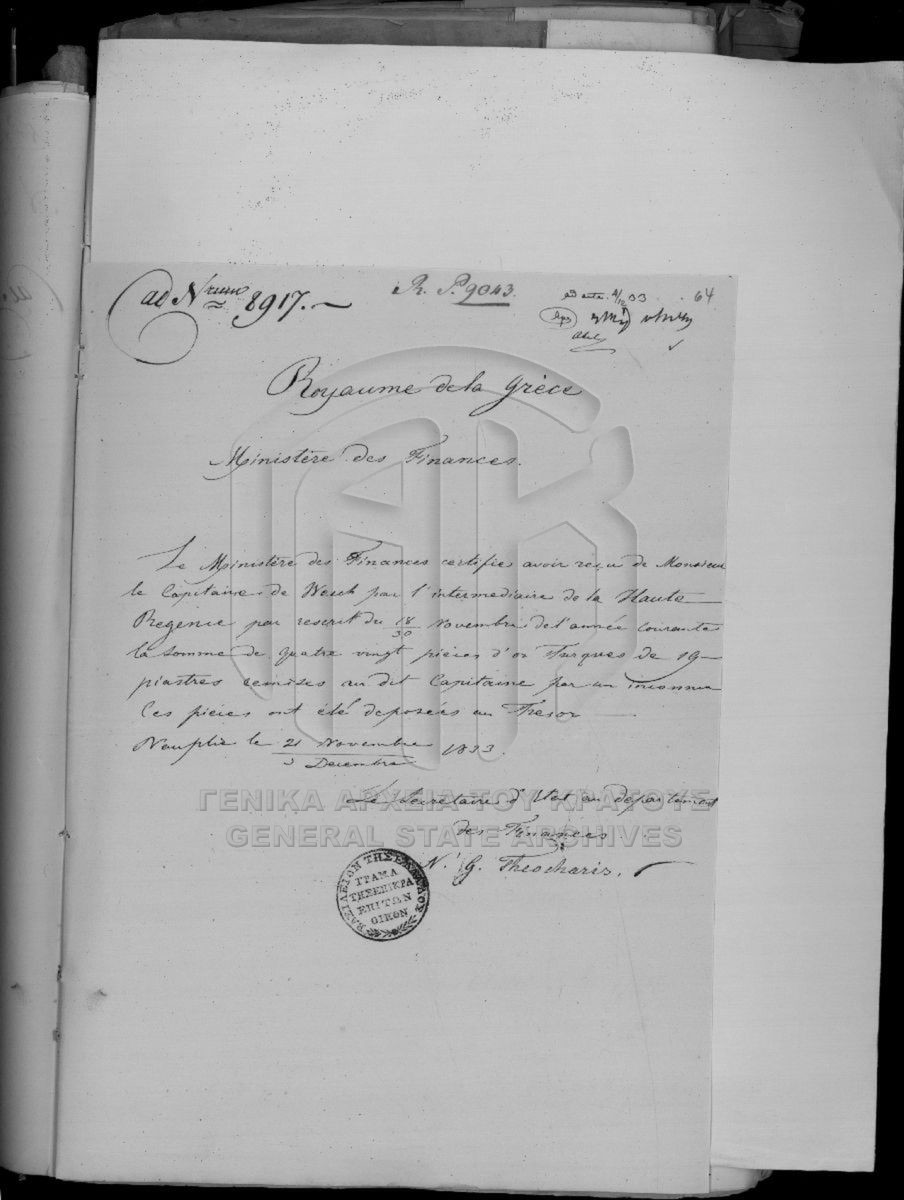 ad Nrum 8917.
R. P. 9043.
64
Royaume de la Grèce
Ministère des Finances.
Le Ministère des Finances certifie avoir reçu de Monsieur
le Capitaine de Wesch par l'intermediaire de la Haute
Regence par rescrit du 18/30 Novembre de l'année courante
la somme de quatre vingt pièces d'or Turques de 19
piastres remises au dit Capitaine par un inconnu
Ces pièces ont été deposées au Tresor
Nauplie le 21 Novembre / 3 Decembre 1833.
Le Secretaire d'Etat au departement
des Finances
N. G. Theocharis.
ΒΑΣΙΛΕΙΟΝ ΤΗΣ ΕΛΛΑΔΟΣ
ΓΡΑΜΑ
ΤΗΣ ΕΠΙΚΡΑ
ΕΠΙ ΤΩΝ
ΟΙΚΟΝ
ΓΕΝΙΚΑ ΑΡΧΕΙΑ ΤΟΥ ΚΡΑΤΟΥΣ
GENERAL STATE ARCHIVES